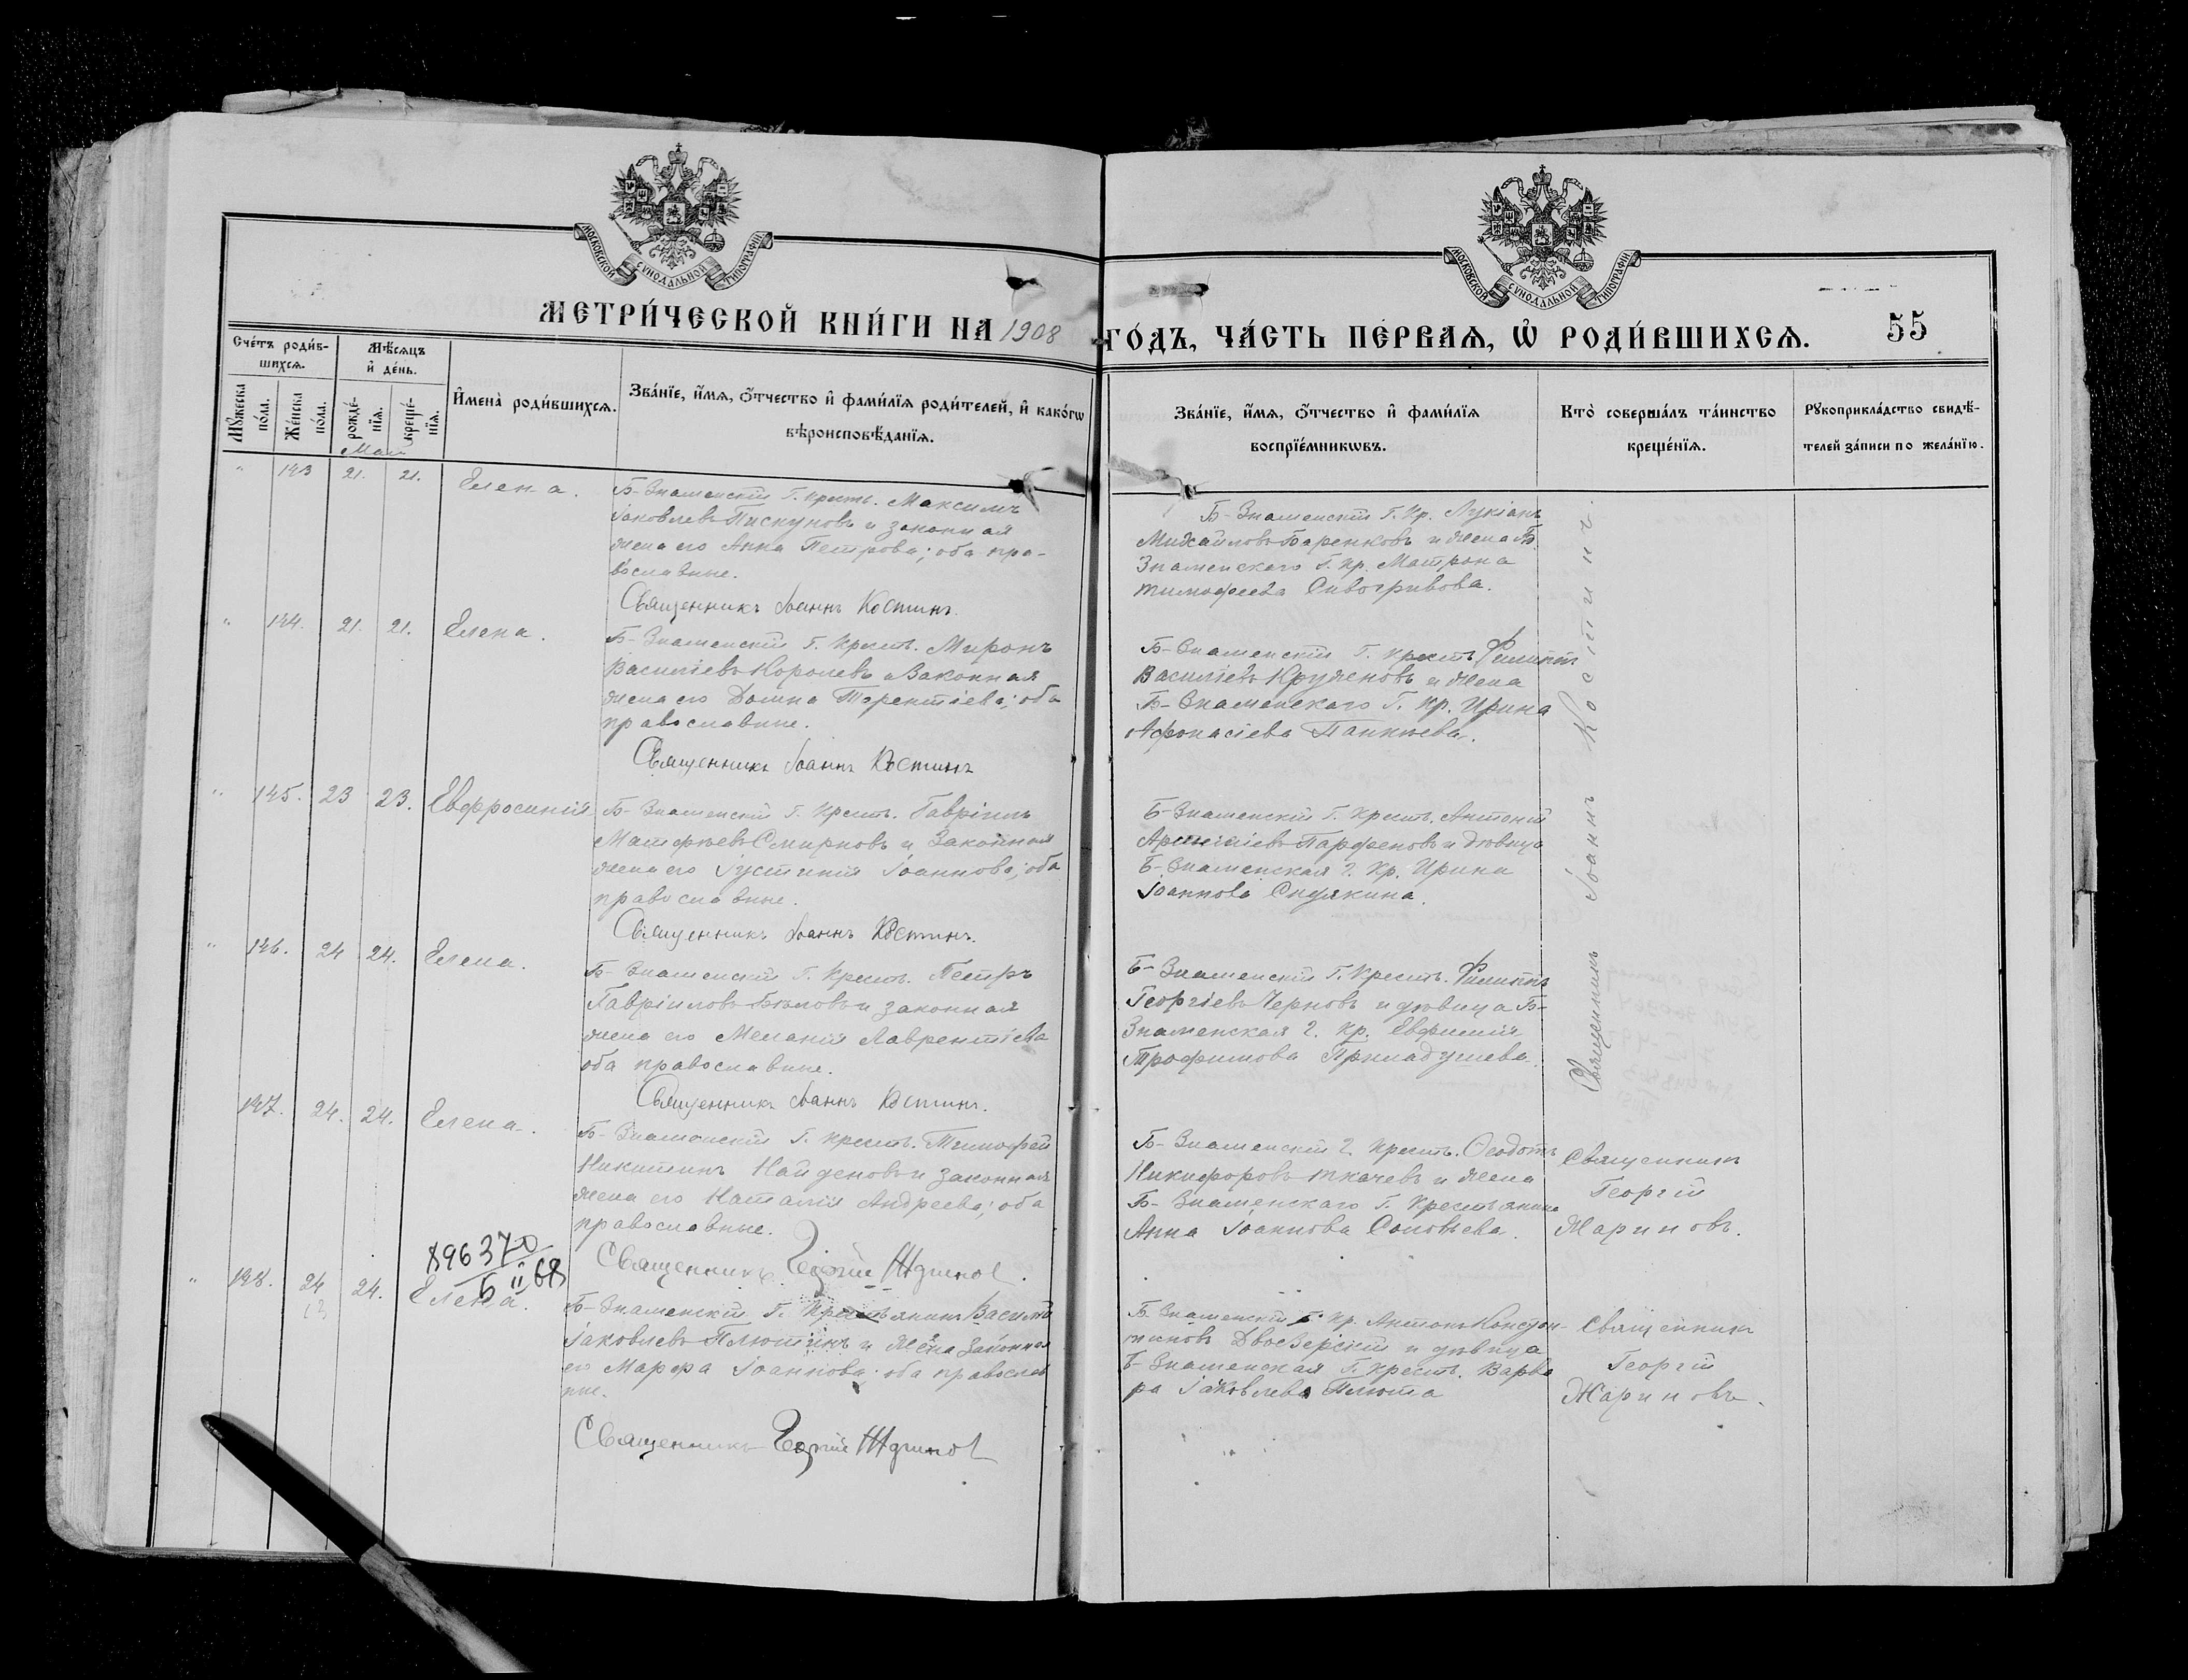 МОСКОВСКОЙ СѴНОДАЛЬНОЙ ТИПОГРАФІИ
МОСКОВСКОЙ СѴНОДАЛЬНОЙ ТИПОГРАФІИ
МЕТРИ́ЧЕСКОЙ КНИ́ГИ НА 1908 ГО́ДЪ, ЧА́СТЬ ПЕ́РВАѦ, Ѡ҆ РОДИ́ВШИХСѦ. 55
Сче́тъ роди́в-
шихсѧ.
Мꙋ́жеска по́ла.
Же́нска по́ла.
Мѣ́сѧцъ
и҆ де́нь.
рожде́-
нїѧ.
креще́-
нїѧ.
И҆мена̀ роди́вшихсѧ.
Зва́нїе, и҆́мѧ, ѻ҆́тчество и҆ фами́лїѧ роди́телей, и҆ како́гѡ
вѣроисповѣ́данїѧ.
Зва́нїе, и҆́мѧ, ѻ҆́тчество и҆ фами́лїѧ
воспрїе́мникѡвъ.
Кто̀ соверша́лъ та́инство
креще́нїѧ.
Рꙋкоприкла́дство свидѣ́-
телей за́писи по жела́нїю.
Май
" 143 21. 21. Елена.
Б-Знаменскій Г. крест. Максимъ
Іаковлевъ Пискуновъ и законная
жена его Анна Петрова; оба пра-
вославные.
Священникъ Іоаннъ Костинъ.
Б-Знаменскій Г. Кр. Лукіанъ
Михайловъ Баренковъ и жена Б.
Знаменскаго Г. Кр. Матрона
Тимофеева Сивогривова.
" 144. 21. 21. Елена.
Б-Знаменскій Г. крест. Миронъ
Василіевъ Королевъ и Законная
жена его Домна Терентіева; оба
православные.
Священникъ Іоаннъ Костинъ
Б-Знаменскій Г. крест. Филиппъ
Василіевъ Круженовъ и жена
Б-Знаменскаго Г. Кр. Ирина
Афонасіева
" 145. 23 23. Евфросинія
Б-Знаменскій Г. Крест. Гавріилъ
Матфеевъ Смирновъ и Законная
жена его Іустинія Іоаннова; оба
православные.
Священникъ Іоаннъ Костинъ.
Б-Знаменскій Г. Крест. Антоній
Арсеніевъ Парфеновъ и дѣвица
Б-Знаменская Г. Кр. Ирина
Іоаннова Сидякина.
" 146. 24 24. Елена.
Б-Знаменскій Г. Крест. Петръ
Гавріиловъ Бѣловъ и законная
жена его Меланія Лаврентіева
оба православные.
Священникъ Іоаннъ Костинъ.
Б-Знаменскій Г. Крест. Филиппъ
Георгіевъ Черновъ и дѣвица Б-
Знаменская Г. Кр. Евфимія
Трофимова
Священникъ Іоаннъ Костинъ.
147. 24. 24. Елена.
Б-Знаменскій Г. крест. Тимофей
Никитинъ Найденовъ и законная
жена его Наталія Андреева; оба
православные.
Священникъ Георгій Жариновъ.
Б-Знаменскій Г. Крест. Ѳеодотъ
Никифоровъ Ткачевъ и жена
Б-Знаменскаго Г. Крестьянина
Анна Іоаннова Соловьева.
Священникъ
Георгій
Жариновъ.
896370
6 II 68
" 148. 24 24. Елена.
Б-Знаменскій Г. Крестьянинъ Василій
Іаковлевъ Плютинъ и жена законная
его Марфа Іоаннова оба православ
ные.
Священникъ Георгій Жариновъ
Б-Знаменскій Г. Кр. Антонъ Констан-
тиновъ Двоезерскій и дѣвица
Б-Знаменская Г. крест. Варва
ра Іаковлева Плюта
Священникъ
Георгій
Жариновъ.